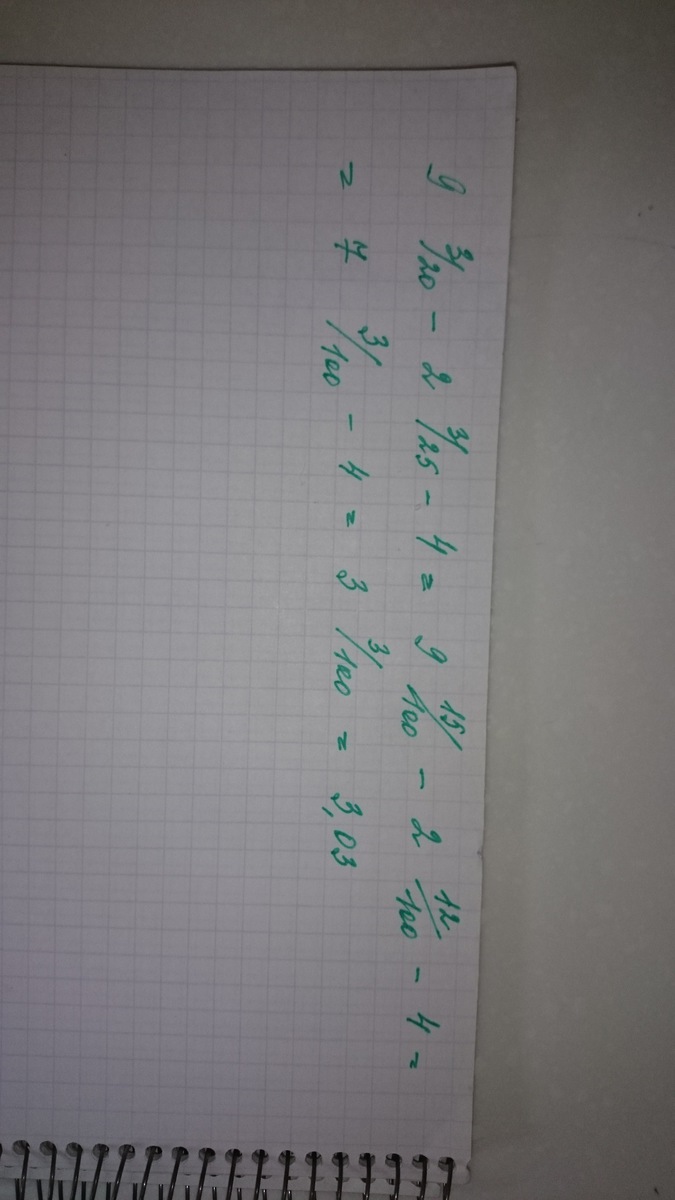 9 3/20 - 2 3/25 - 4 = 9 15/100 - 2 12/100 - 4 =
= 7 3/100 - 4 = 3 3/100 = 3,03